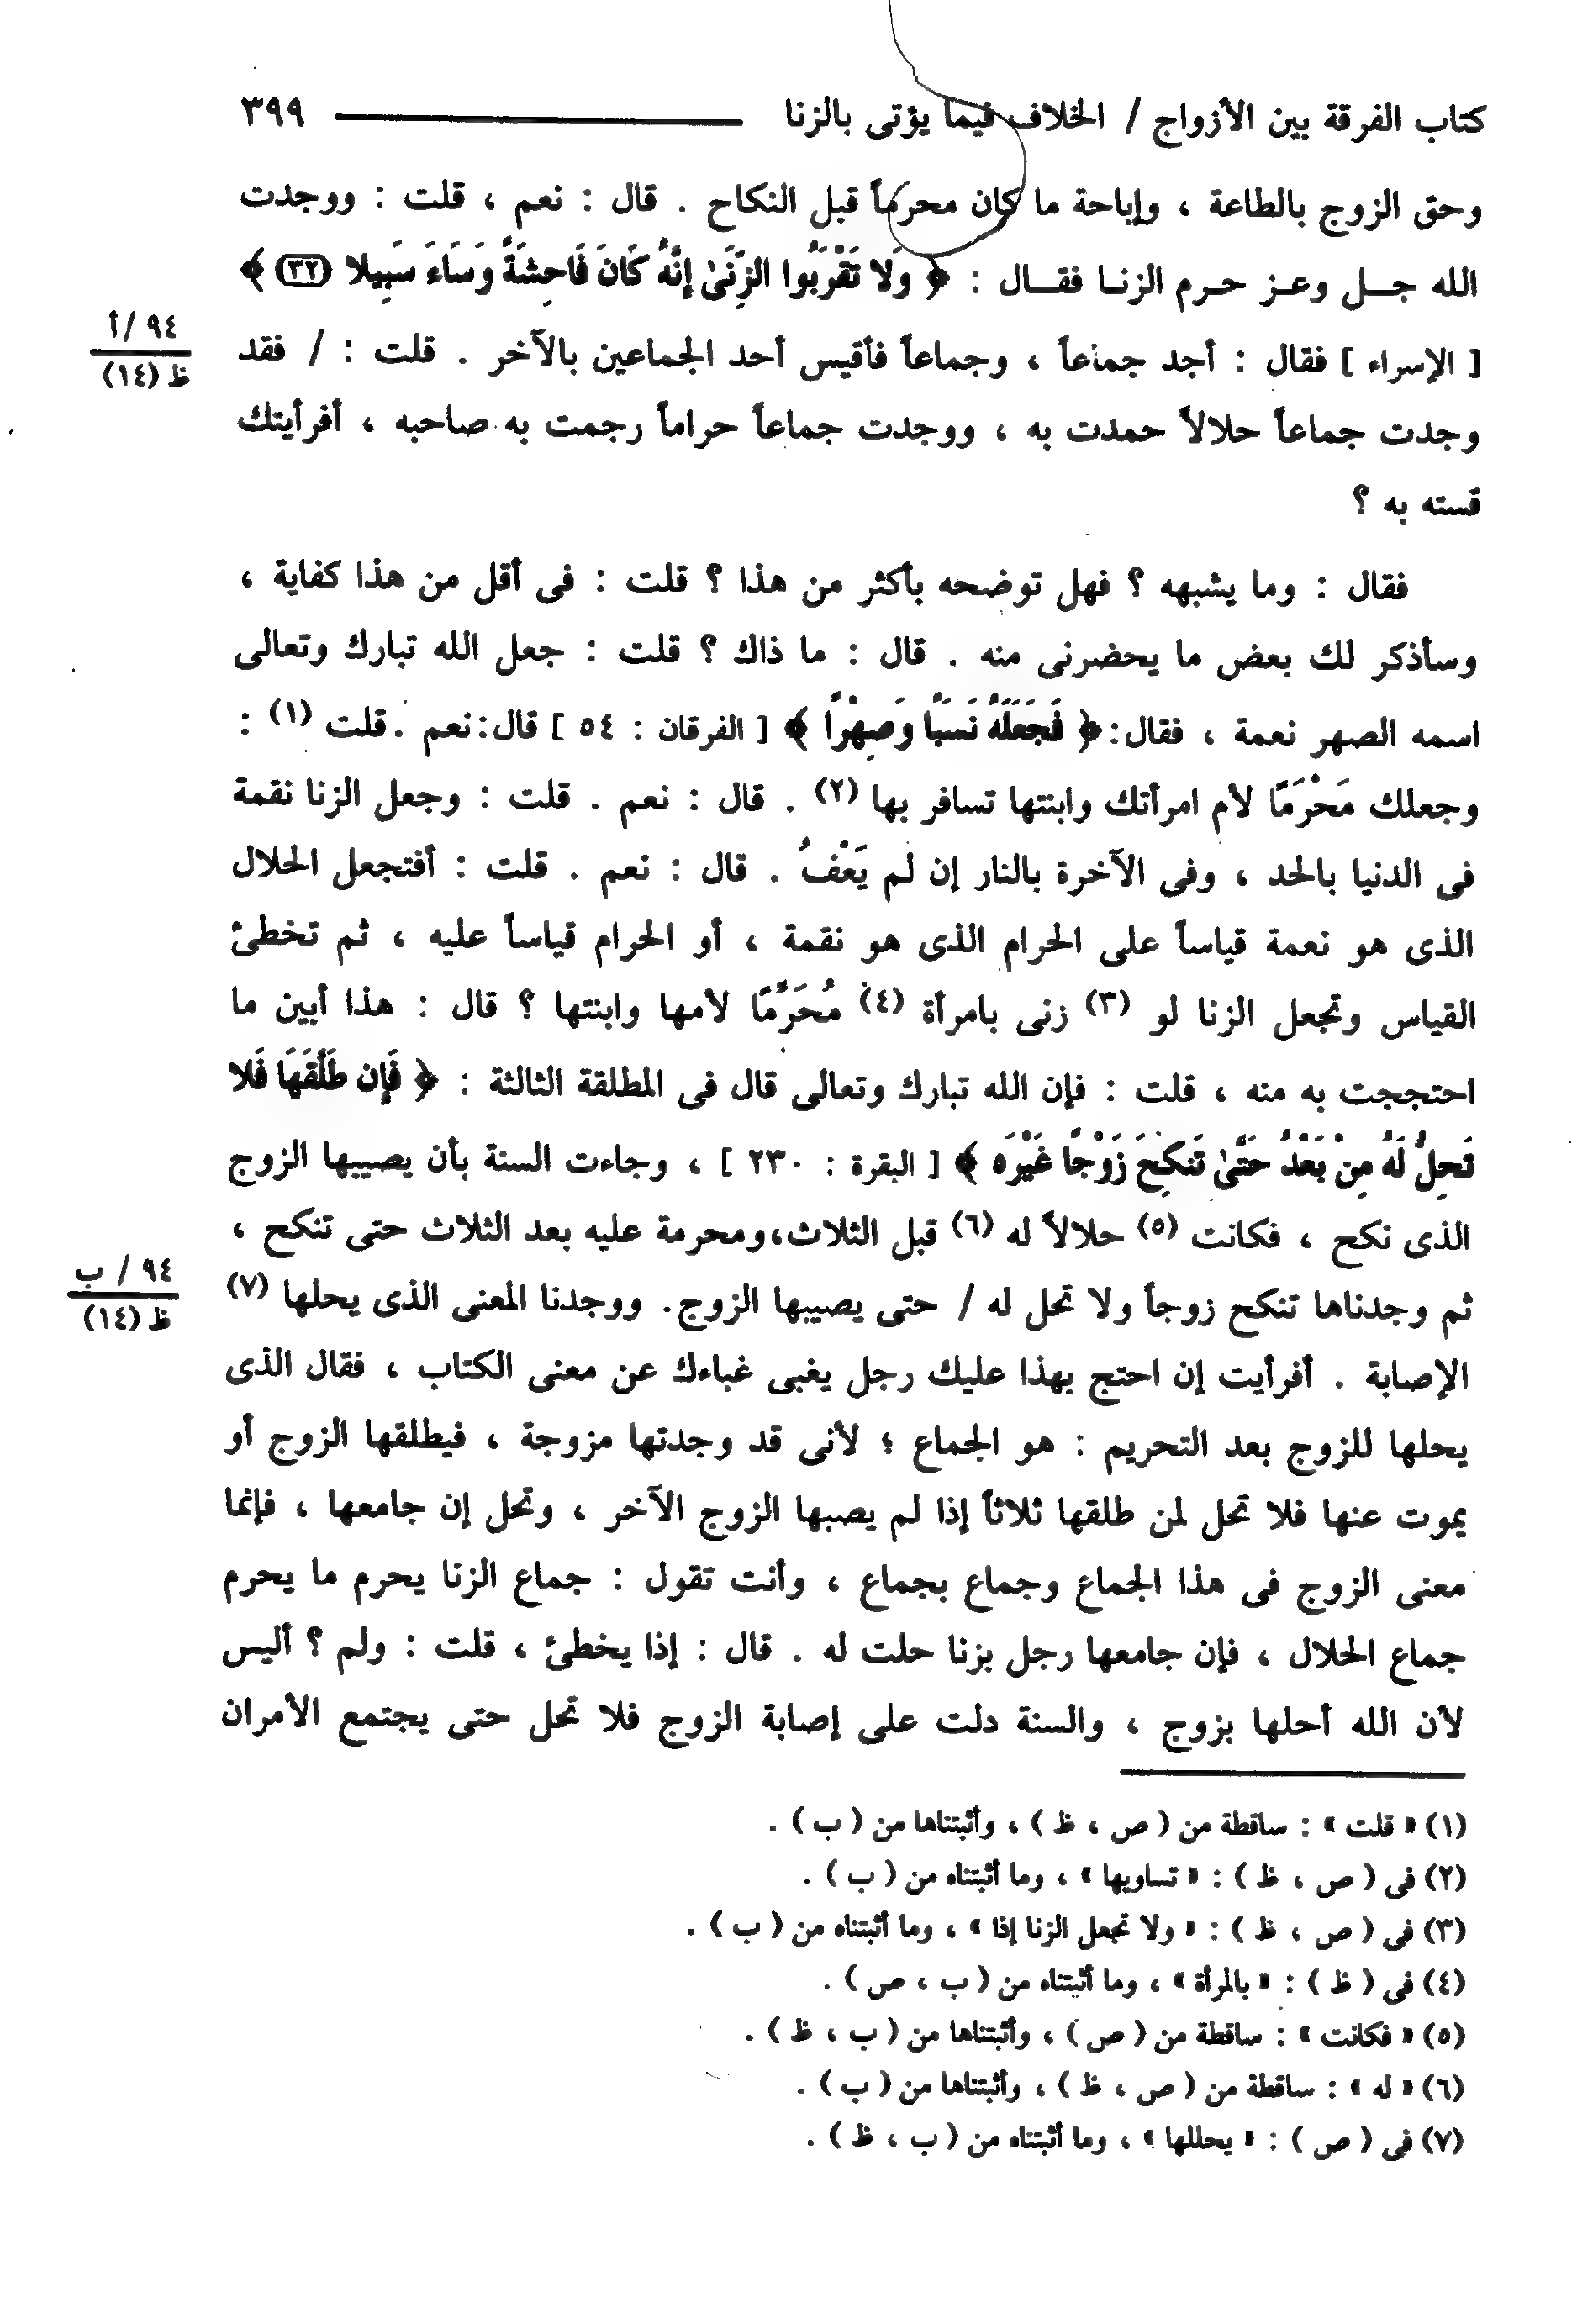 كتاب الفرقة بين الأزواج / الخلاف فيما يؤتى بالزنا ٣٩٩
وحق الزوج بالطاعة ، وإباحة ما كان محرماً قبل النكاح . قال : نعم ، قلت : ووجدت
الله جــل وعـز حـرم الزنـا فقــال : ﴿ وَلا تَقْرَبُوا الزِّنَىٰ إِنَّهُ كَانَ فَاحِشَةً وَسَاءَ سَبِيلا (٣٢) ﴾
[ الإسراء ] فقال : أجد جماعاً ، وجماعاً فأقيس أحد الجماعين بالآخر . قلت : / فقد
٩٤ /أ
ظ (١٤)
وجدت جماعاً حلالاً حمدت به ، ووجدت جماعاً حراماً رجمت به صاحبه ، أفرأيتك
قسته به ؟
فقال : وما يشبهه ؟ فهل توضحه بأكثر من هذا ؟ قلت : فى أقل من هذا كفاية ،
وسأذكر لك بعض ما يحضرنى منه . قال : ما ذاك ؟ قلت : جعل الله تبارك وتعالى
اسمه الصهر نعمة ، فقال: ﴿ فَجَعَلَهُ نَسَبًا وَصِهْرًا ﴾ [ الفرقان : ٥٤ ] قال: نعم . قلت (١) :
وجعلك مَحْرَمًا لأم امرأتك وابنتها تسافر بها (٢) . قال : نعم . قلت : وجعل الزنا نقمة
فى الدنيا بالحد ، وفى الآخرة بالنار إن لم يَعْفُ . قال : نعم . قلت : أفتجعل الحلال
الذى هو نعمة قياساً على الحرام الذى هو نقمة ، أو الحرام قياساً عليه ، ثم تخطئ
القياس وتجعل الزنا لو (٣) زنى بامرأة (٤) مُحَرَّمًا لأمها وابنتها ؟ قال : هذا أبين ما
احتججت به منه ، قلت : فإن الله تبارك وتعالى قال فى المطلقة الثالثة : ﴿ فَإِن طَلَّقَهَا فَلا
تَحِلُّ لَهُ مِنْ بَعْدُ حَتَّىٰ تَنكِحَ زَوْجًا غَيْرَه ﴾ [ البقرة : ٢٣٠ ] ، وجاءت السنة بأن يصيبها الزوج
الذى نكح ، فكانت (٥) حلالاً له (٦) قبل الثلاث، ومحرمة عليه بعد الثلاث حتى تنكح ،
ثم وجدناها تنكح زوجاً ولا تحل له / حتى يصيبها الزوج. ووجدنا المعنى الذى يحلها (٧)
٩٤ / ب
ظ (١٤)
الإصابة . أفرأيت إن احتج بهذا عليك رجل يغبى غباءك عن معنى الكتاب ، فقال الذى
يحلها للزوج بعد التحريم : هو الجماع ؛ لأنى قد وجدتها مزوجة ، فيطلقها الزوج أو
يموت عنها فلا تحل لمن طلقها ثلاثاً إذا لم يصبها الزوج الآخر ، وتحل إن جامعها ، فإنما
معنى الزوج فى هذا الجماع وجماع بجماع ، وأنت تقول : جماع الزنا يحرم ما يحرم
جماع الحلال ، فإن جامعها رجل بزنا حلت له . قال : إذا يخطئ ، قلت : ولم ؟ أليس
لأن الله أحلها بزوج ، والسنة دلت على إصابة الزوج فلا تحل حتى يجتمع الأمران
(١) « قلت » : ساقطة من ( ص ، ظ ) ، وأثبتناها من ( ب ) .
(٢) فى ( ص ، ظ ) : « تساويها » ، وما أثبتناه من ( ب ) .
(٣) فى ( ص ، ظ ) : « ولا تجعل الزنا إذا » ، وما أثبتناه من ( ب ) .
(٤) فى ( ظ ) : « بالمرأة » ، وما أثبتناه من ( ب ، ص ) .
(٥) « فكانت » : ساقطة من ( ص ) ، وأثبتناها من ( ب ، ظ ) .
(٦) « له » : ساقطة من ( ص ، ظ ) ، وأثبتناها من ( ب ) .
(٧) فى ( ص ) : « يحللها » ، وما أثبتناه من ( ب ، ظ ) .